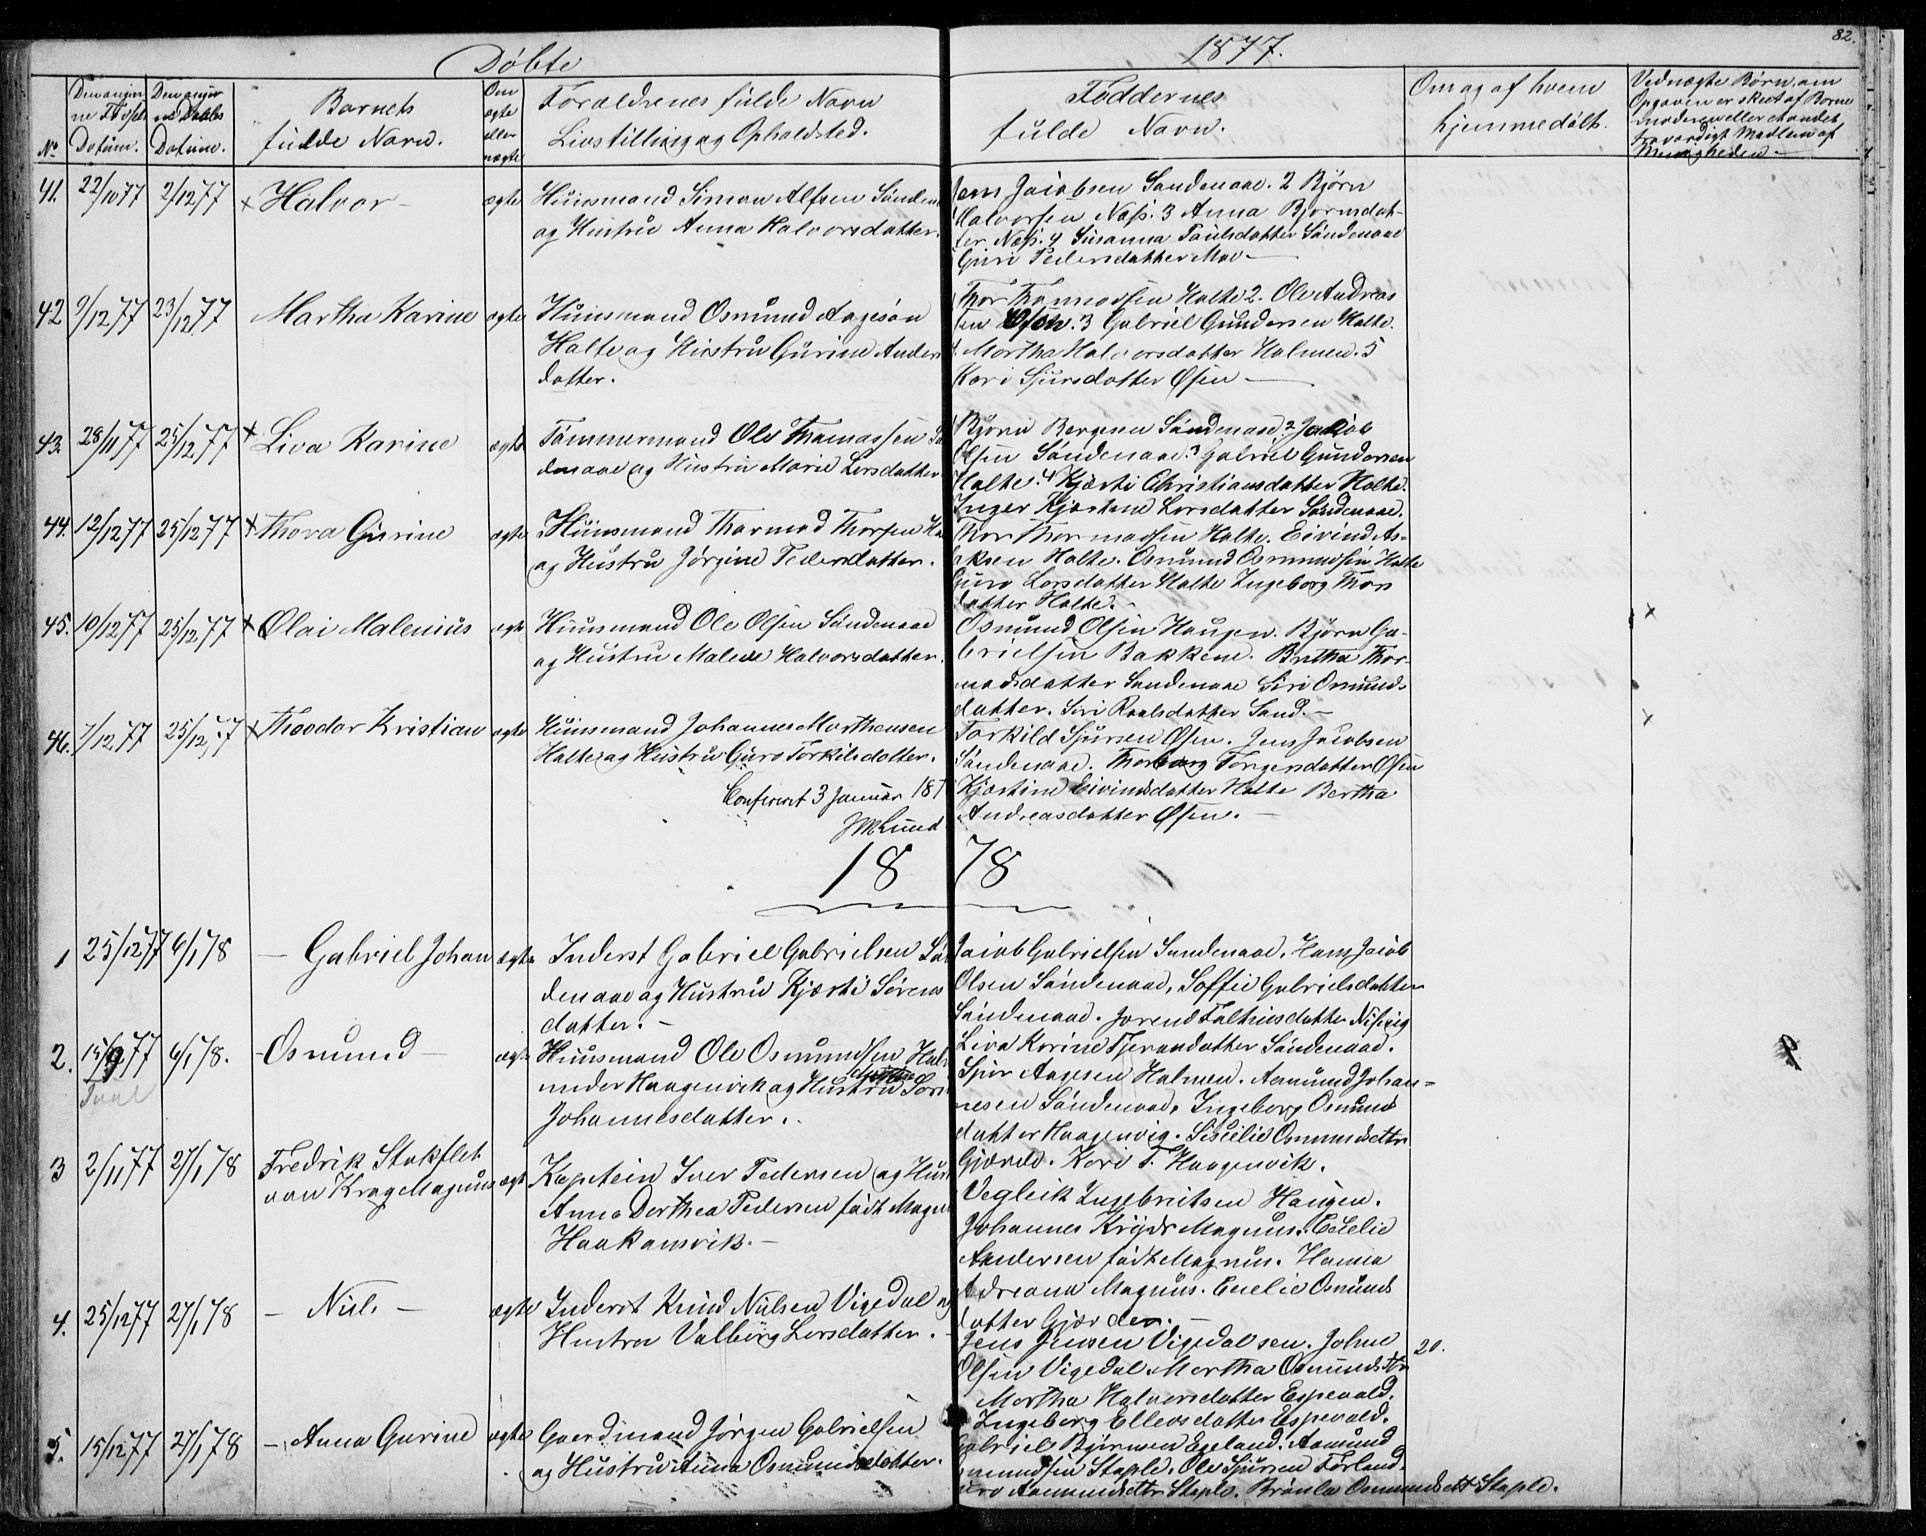 Døbte
1877.
82.
No
Datum.
Datum.
Barnets
fulde Navn.
Om
ægte
eller
uægte
Forældrenes fulde Navn
Livsstilling og Opholdsted.
Faddernes
fulde Navn.
Om og af hvem
hjemmedøbt.
Ved uægte Børn, om
Opgaven er skeet af Barne
moderen eller et andet
troværdigt Medlem af
Menigheden
41. 22/10 77 2/12 77 × Halvor - ægte Huusmand Simon Alfsen Sanden
og Hustru Anna Halvorsdatter.
Jens Jacobsen Sandenaae. 2 Bjørn
Halvorsen Næss. 3 Anna Bjørnsdat-
ter Næss. 4 Susanna Paulsdatter Sandenaae
Guri Pedersdatter Moe -
42 9/12 77 23/12 77 Martha Karine ægte Huusmand Osmund Aagesøn
Halte og Hustru Gurine Anders
datter.
Thor Thormodsen Halte 2. Ole Andreas
sen Øsen. 3 Gabriel Gundersen Halte.
4. Martha Halvorsdatter Holmen. 5
Kari Sjursdatter Øsen -
43. 28/11 77 25/12 77 × Liva Karine ægte Tømmermand Ole Thomassen Sa
denaae og Hustru Marie Larsdatter
Bjørn Bergesen Sandenaae. 2 Jakob
Olsen Sandenaae. 3 Gabriel Gundersen
Halte. 4 Kjersti Christiansdatter Halte.
Inger Kjerstine Larsdatter Sandenaae.
44. 12/12 77 25/12 77 × Thora Gurine ægte Huusmand Thormod Thorsen Ha
og Hustru Jørgine Pedersdatter.
Thor Thormodsen Halte. Eivind As-
laksen Halte. Osmund Osmundsen Halte
Guro Larsdatter Halte Ingeborg Thors
datter Halte.
45. 10/12 77 25/12 77 × Olai Malenius ægte Huusmand Ole Olsen Sandenaae
og Hustru Malene Halvorsdatter.
Osmund Olsen Haugen. Bjørn Ga-
brielsen Bakkene. Britha Thor-
modsdatter Sandenaae Siri Osmunds-
datter. Siri Roalsdatter Sand. -
×
46. 7/12 77 25/12 77 × Theodor Kristian ægte Huusmand Johannes Marthensen
Halte og Hustru Guro Torkilsdatter.
Torkild Sjursen Øsen. Jens Jacobsen
Sandenaae. Thorborg Torgersdatter Øsen
Kjerstine Eivindsdatter Halte Bertha
Andreasdatter Øsen. -
×
Confereret 3 Januar 187
Lund
1878
1 25/12 77 6/1 78 - Gabriel Johan ægte Inderst Gabriel Gabrielsen San
denaae og Hustru Kjersti Sørens
datter. -
Jacob Gabrielsen Sandenaae. Hans Jacob
Olsen Sandenaae, Soffie Gabrielsdatter
Sandenaae.
Liva Karine Sandenaae.
2. 15/9 77 6/1 78. - Osmund - ægte Huusmand Ole Osmundsen Hal
under Haagenvik og Hustru Siri
Johannesdatter.
Sjur Aagesen Holmen. Aamund Johan-
nesen Sandenaae, Ingeborg Osmunds
datter Haagenvig. Sesselie Osmundsdttr
Kari T. Haagenvik.
3 2/11 77 27/1 78 Fredrik Stokflet
von Krag Magnus ægte Kaptein Iver Pedersen og Hust
Anna Dorthea Pedersen født Magnu
Haakonsvik. -
Vegleik Ingebritsen Haugen.
Johannes Magnus. Cecelie
Andersen født Magnus. Hanna
Adreana Magnus. Cecelie Osmunds
datter
4. 25/12 77 27/1 78 - Nils - ægte Inderst Knud Nielsen Vigedal og
Hustru Valborg Larsdatter. -
Jens Jensen Vigedalsen. John
Olsen Vigedal Martha Osmundsdttr
Martha Halvorsdatter Espevold.
Ingeborg Ellevsdatter Espevold.
20.
5. 15/12 77 27/1 78 - Anna Gurine ægte Gaardmand Jørgen Gabrielsen
og Hustru Anna Osmundsdatter.
Gabriel Bjørnsen Eeland. Aamund
Osmundsen Staple. Ole Sjursen Førland.
Guro Aamundsdttr Staple. Osmundsdttr Staple.